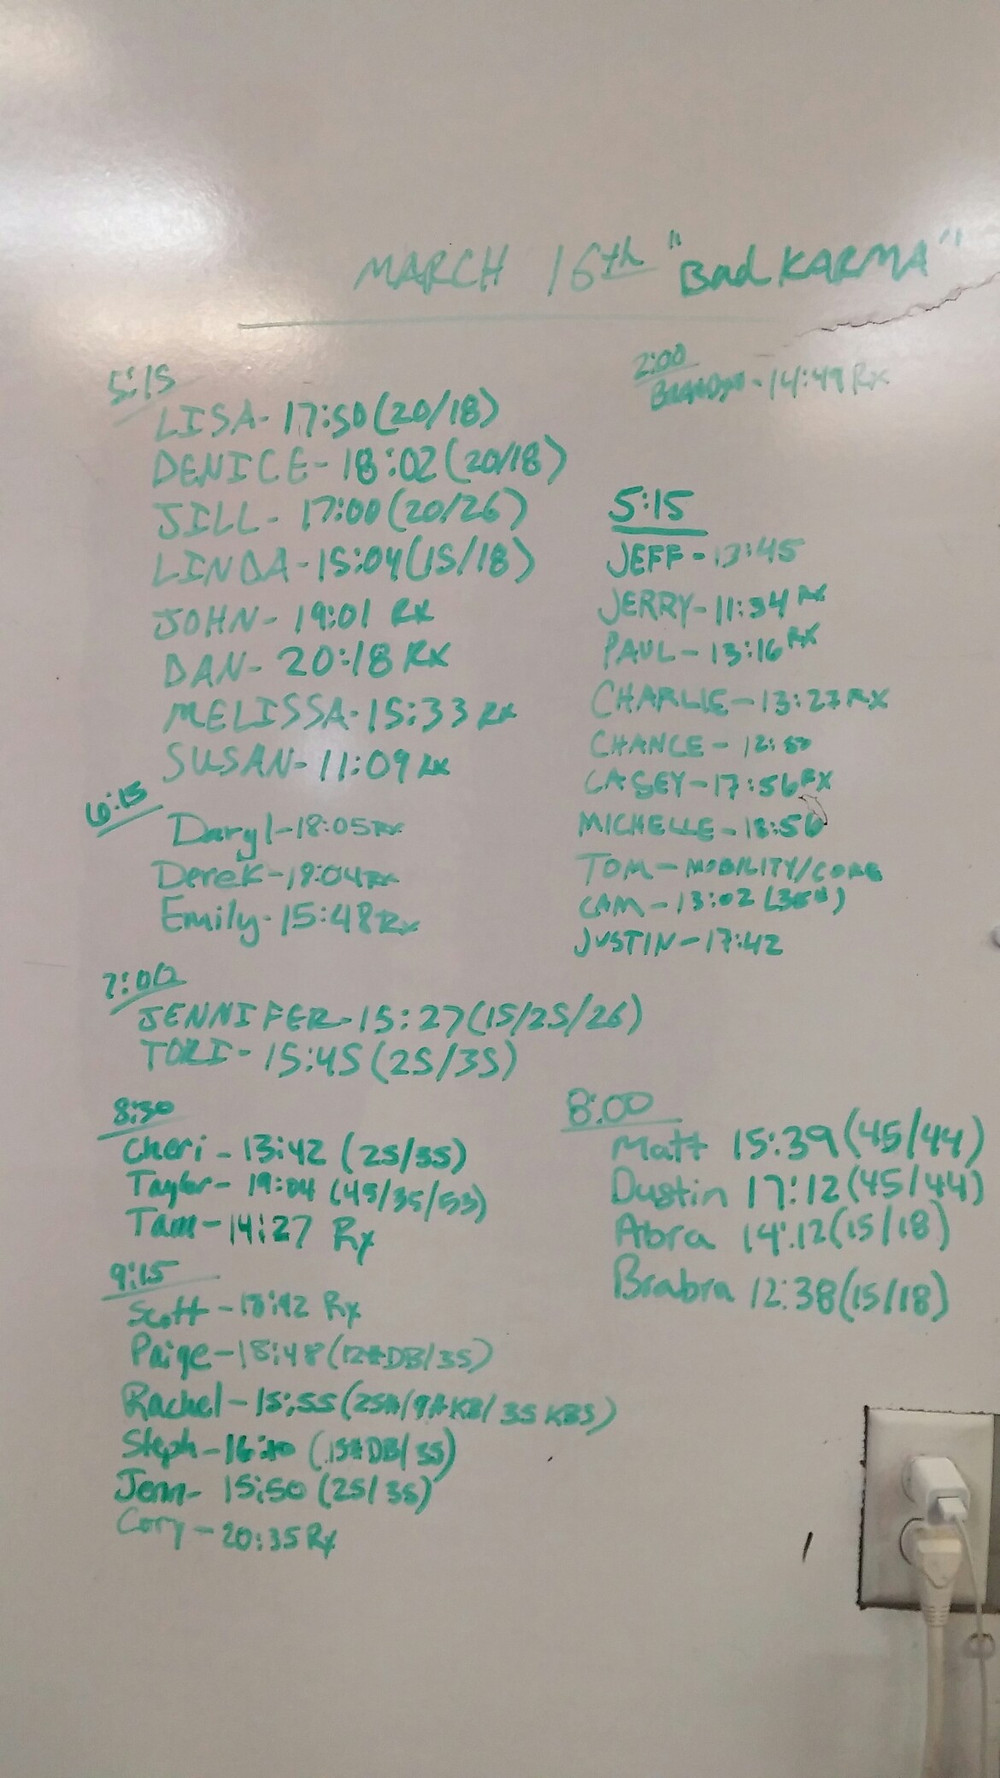 MARCH 16th "Bad KARMA"
5:15
LISA- 17:50 (20/18)
DENICE- 18:02 (20/18)
JILL- 17:00 (20/26)
LINDA- 15:04 (15/18)
JOHN- 19:01 RX
DAN- 20:18 RX
MELISSA- 15:33 RX
SUSAN- 11:09 RX
6:15
Daryl- 18:05 RX
Derek- 18:04 RX
Emily- 15:48 Rx
7:00
JENNIFER- 15:27 (15/25/26)
TORI- 15:45 (25/35)
8:30
Cheri- 13:42 (25/35)
Taylor- 19:04 (45/35/53)
Tam- 14:27 Rx
9:15
Scott- 18:42 Rx
Paige- 18:48 (12#DB/35)
Rachel- 15:55 (25#/9#KB/35 KBS)
Steph- (15#DB/35)
Jenn- 15:50 (25/35)
Cory- 20:35 Rx
2:00
14:49 Rx
5:15
JEFF- 13:45
JERRY- 11:34 RX
PAUL- 13:16 RX
CHARLIE- 13:27 RX
CHANCE- 12:50
CASEY- 17:56 RX
MICHELLE- 18:56
TOM- MOBILITY/CORE
CAM- 13:02 (35#)
JUSTIN- 17:42
8:00
Matt 15:39 (45/44)
Dustin 17:12 (45/44)
Abra 14:12 (15/18)
Brabra 12:38 (15/18)